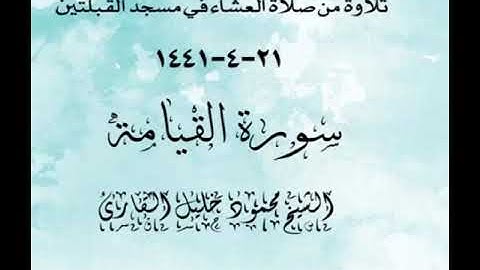 تلاوة من صلاة العشاء في مسجد القبلتين
٢١-٤-١٤٤١
سورة القيامة
الشيخ محمود خليل القارئ